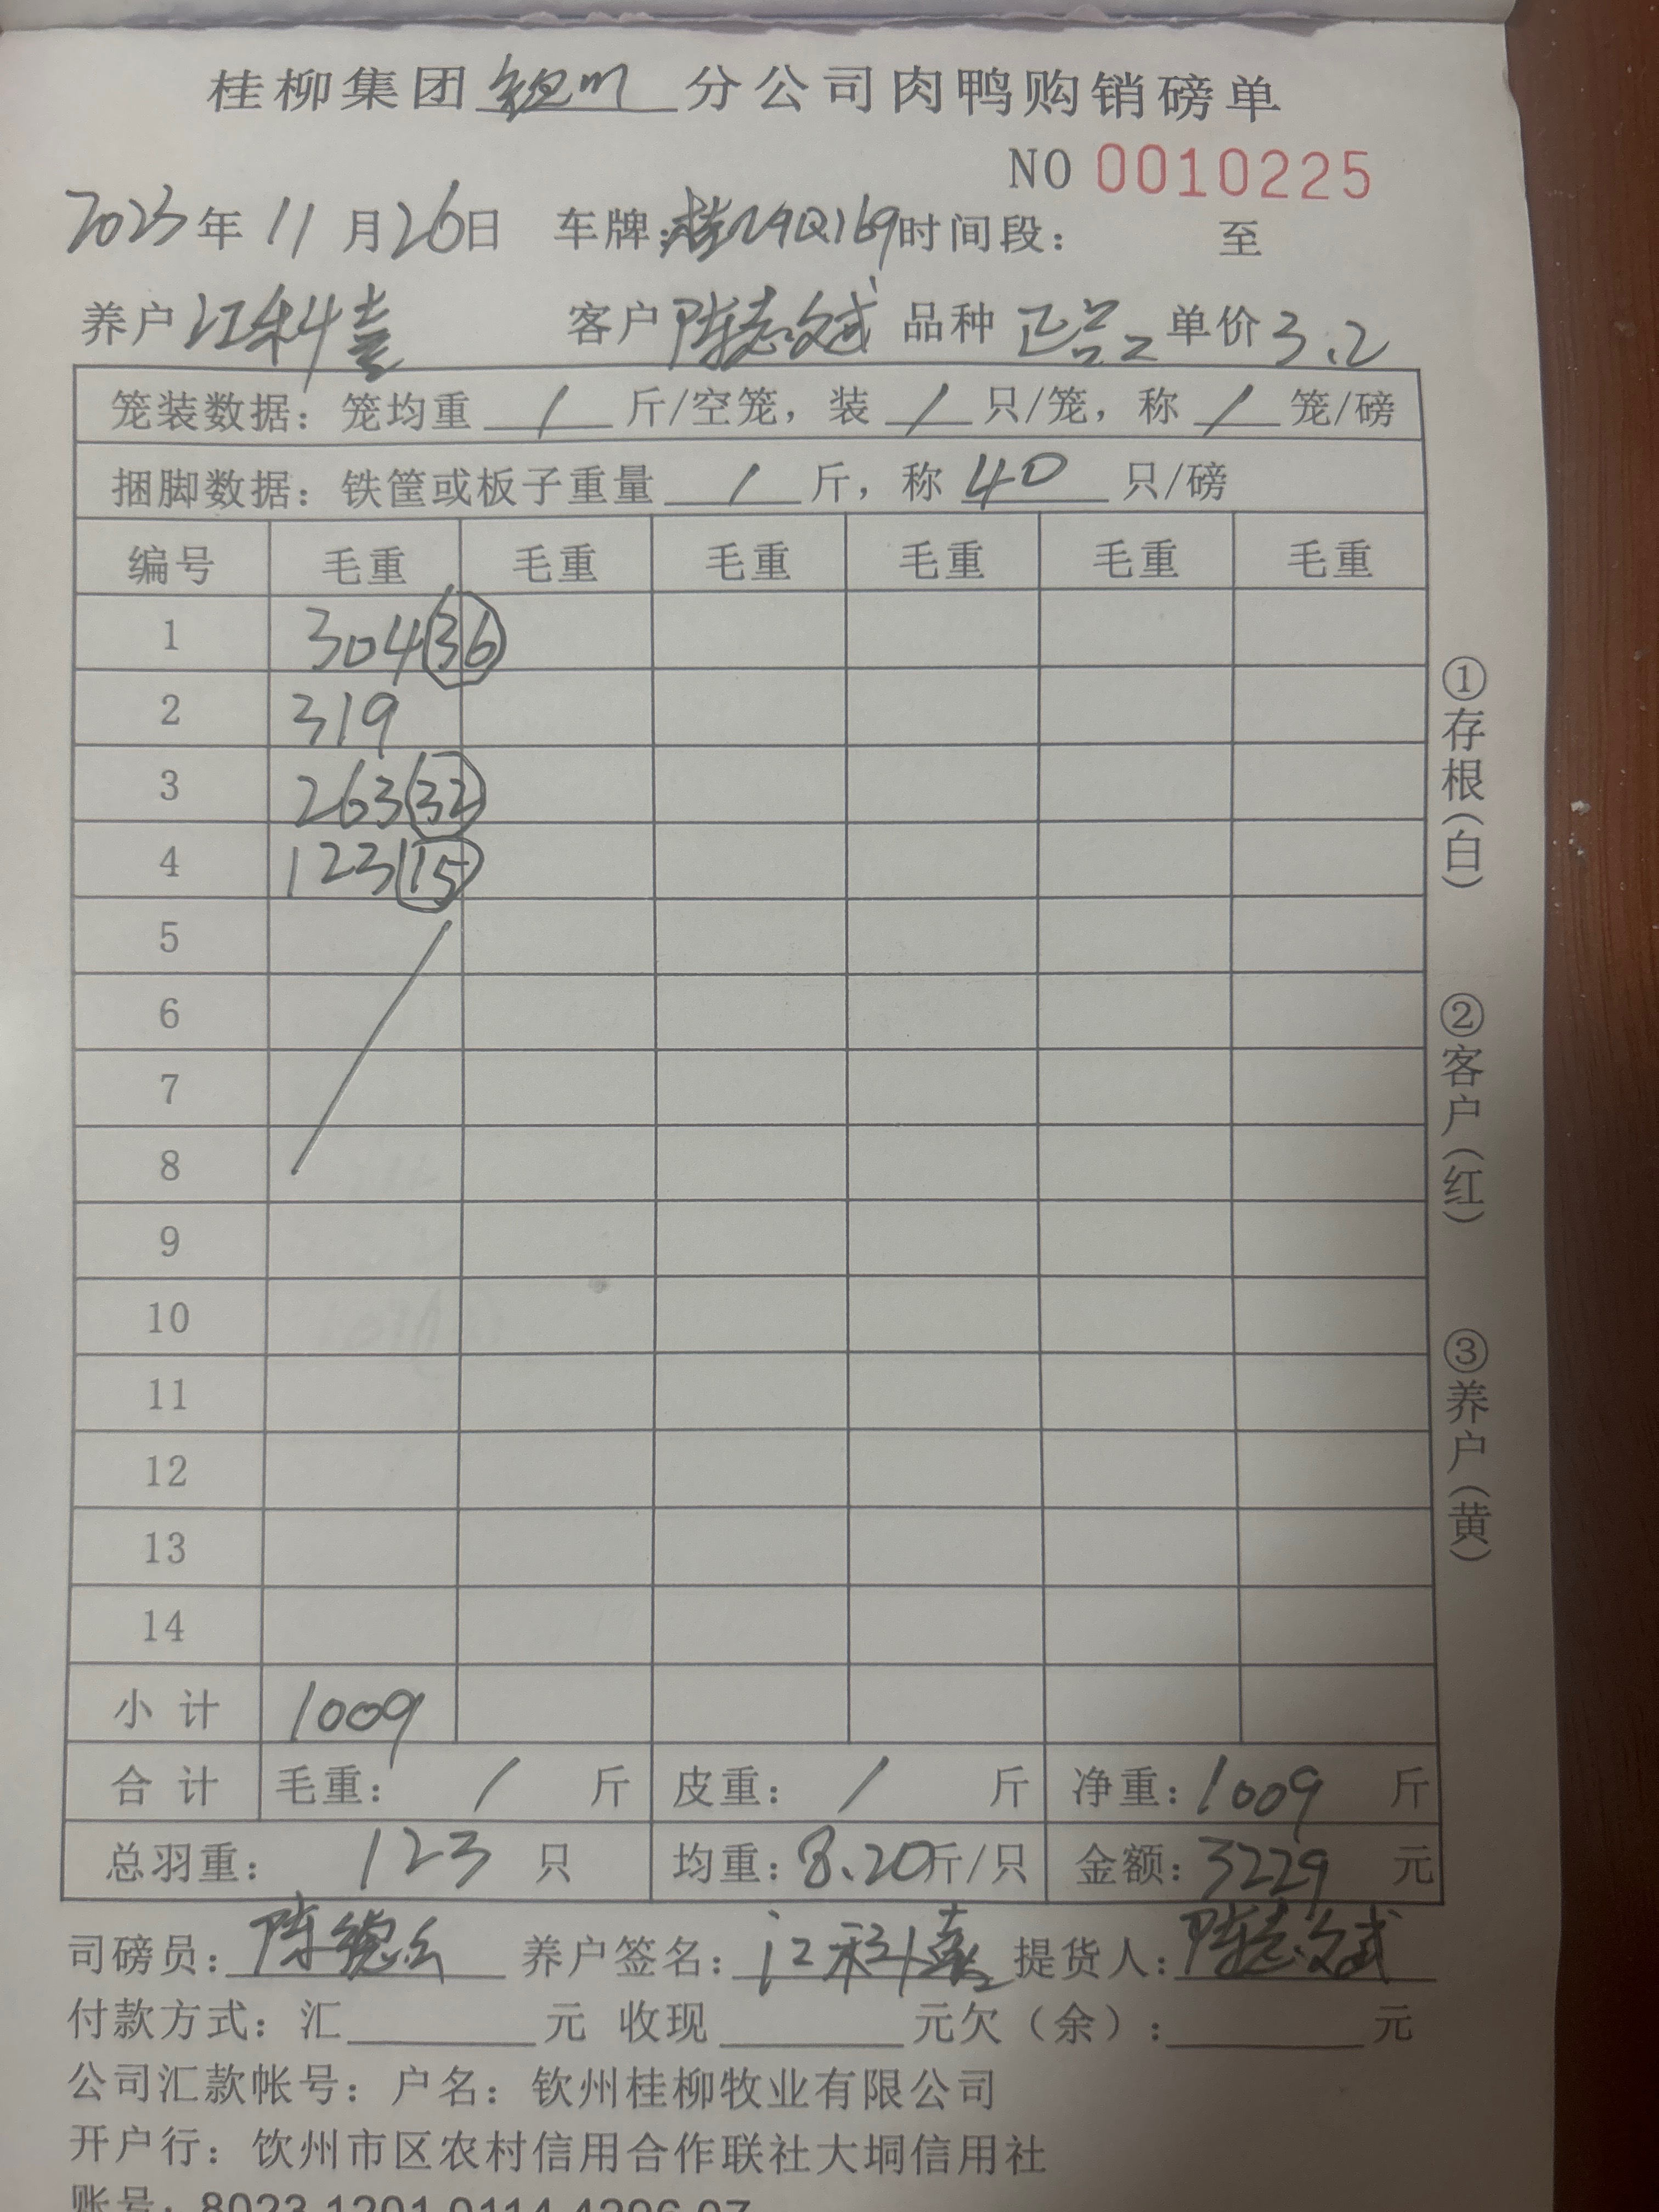 桂柳集团钦州分公司肉鸭购销磅单
NO 0010225
2023年11月26日 车牌: 时间段: 至
养户 江科 客户 陈志斌 品种 正品 单价 3.2
笼装数据: 笼均重 / 斤/空笼, 装 / 只/笼, 称 / 笼/磅
捆脚数据: 铁筐或板子重量 / 斤, 称 40 只/磅
编号 毛重 毛重 毛重 毛重 毛重 毛重
1 304 36
2 319
3 263 32
4 123 15
5
6
7
8
9
10
11
12
13
14
小计 1009
合计 毛重: / 斤 皮重: / 斤 净重: 1009 斤
总羽重: 123 只 均重: 8.20 斤/只 金额: 3229 元
司磅员: 陈 养户签名: 江科 提货人: 陈志斌
付款方式: 汇 元 收现 元欠(余): 元
公司汇款帐号: 户名: 钦州桂柳牧业有限公司
开户行: 饮州市区农村信用合作联社大垌信用社
账号: 8023 1201 0114 4296 07
①存根(白)
②客户(红)
③养户(黄)